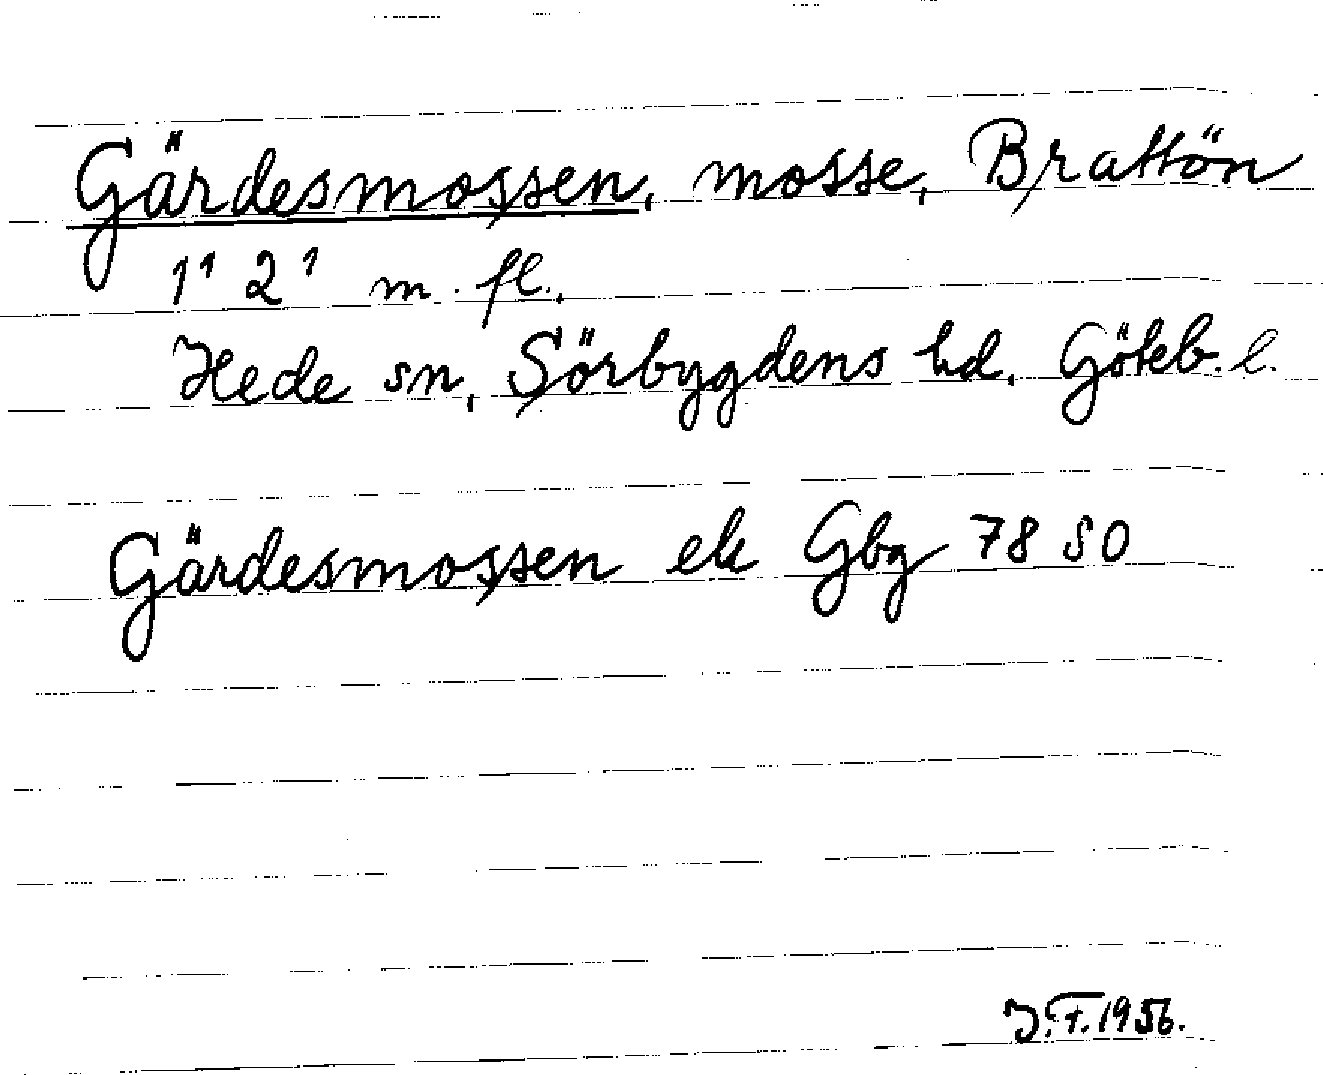 Gärdesmossen, mosse, Brattön
1¹ 2¹ m. fl.,
Hede sn, Sörbygdens hd. Göteb. l.
Gärdesmossen ek Gbg 78 SO
J.F. 1956.